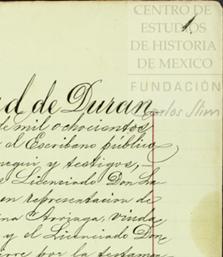 CENTRO DE
ESTUDIOS
DE HISTORIA
DE MEXICO
FUNDACIÓN
Carlos Slim
1
d de Duran
de mil ochocientos
el Escribano público
seguir y testigos,
Licenciado Don
en representacion de
na Arriaga, viuda
y el Licenciado Don
por la testamen